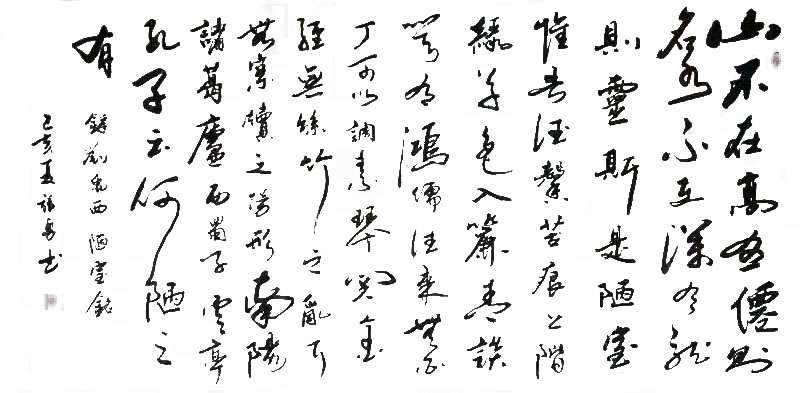 山不在高有僊則
名水不在深有龍
則靈斯是陋室
惟吾德馨苔痕上階
緑草色入簾青談
笑有鴻儒往來無白
丁可以調素琴閱金
經無絲竹之亂耳
無案牘之勞形南陽
諸葛廬西蜀子雲亭
孔子云何陋之
有
錄劉禹西陋室銘
己亥夏書